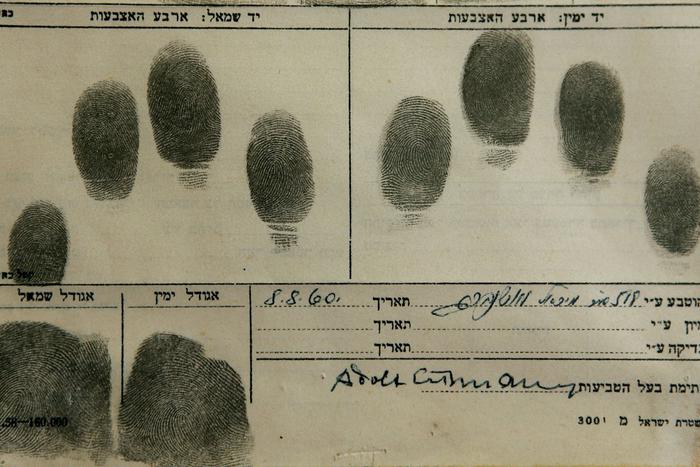 יד שמאל: ארבע האצבעות
יד ימין: ארבע האצבעות
אגודל שמאל
אגודל ימין
הוטבע ע״י
תאריך 8.8.60.
ע״י תאריך
בדיקה ע״י תאריך
חתימת בעל הטביעות
Adolf Eichmann
משטרת ישראל מ 3001
.58—160.000